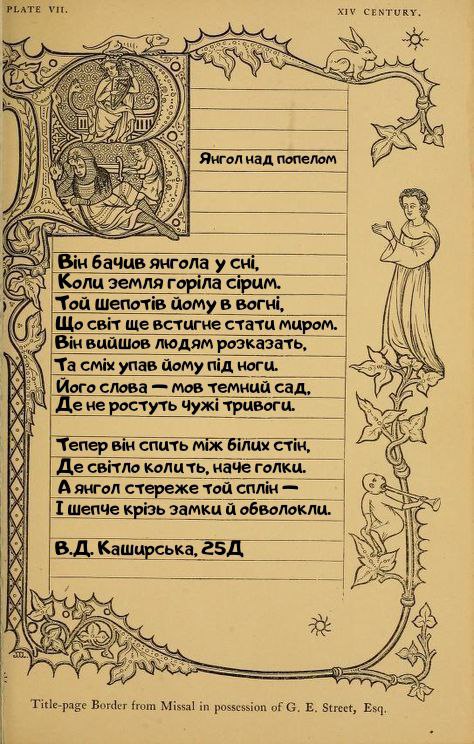 PLATE VII.
XIV CENTURY.
Янгол над попелом
Він бачив янгола у сні,
Коли земля горіла сірим.
Той шепотів йому в вогні,
Що світ ще встигне стати миром.
Він вийшов людям розказать,
Та сміх упав йому під ноги.
Його слова — мов темний сад,
Де не ростуть чужі тривоги.
Тепер він спить між білих стін,
Де світло колить, наче голки.
А янгол стереже той сплін —
І шепче крізь замки й обволокли.
В.Д. Каширська, 25Д
Title-page Border from Missal in possession of G. E. Street, Esq.